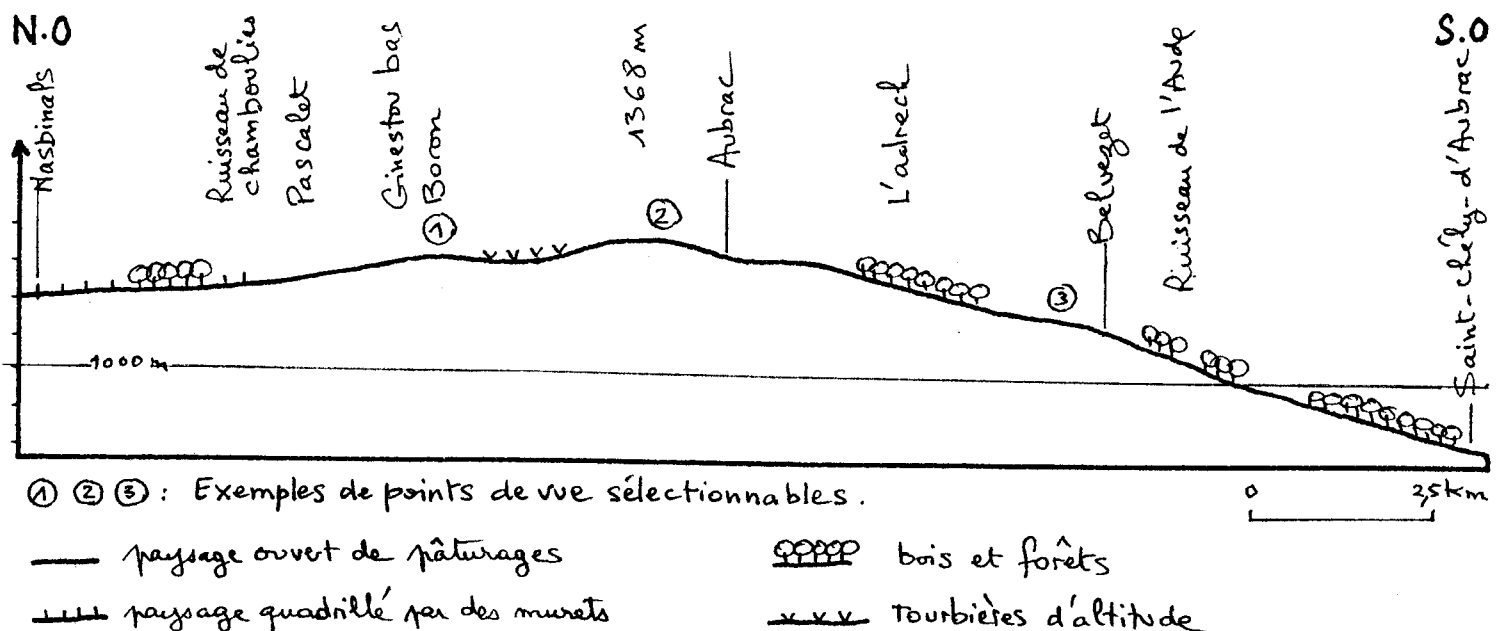 N.O
S.O
Nasbinals
Ruisseau de
chamboulies
Pascalet
Ginestou bas
Boron
1368 m
Aubrac
L'adrech
Belvezet
Ruisseau de l'Aude
Saint-chély-d'Aubrac
① ② ③
1000 m
① ② ③ : Exemples de points de vue sélectionnables.
0 2,5 km
paysage ouvert de pâturages
bois et forêts
paysage quadrillé par des murets
Tourbières d'altitude